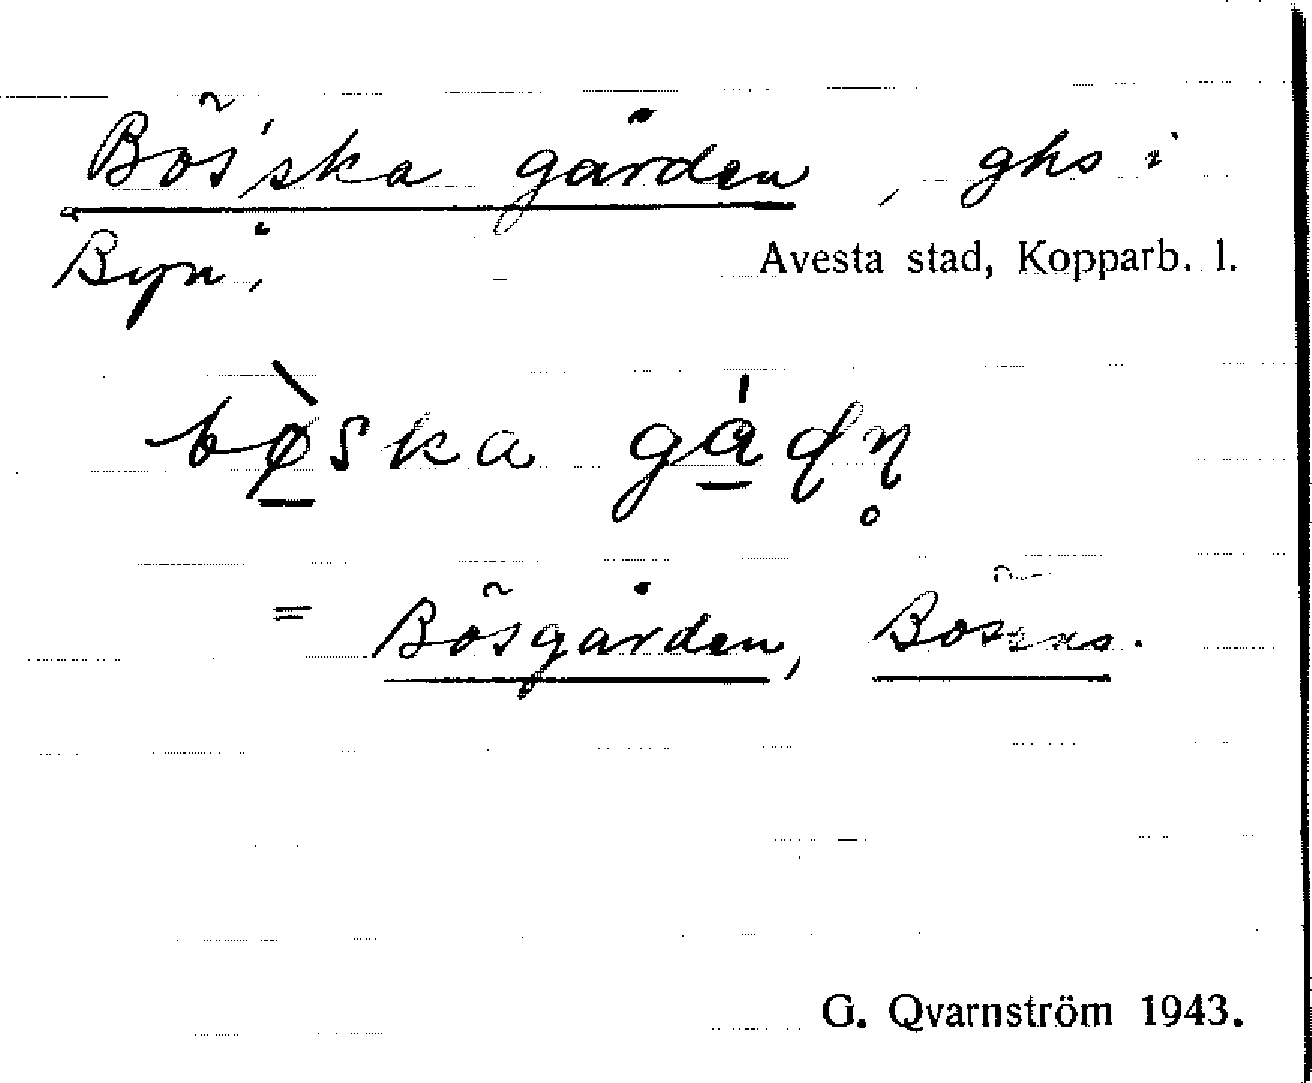 Bös'ska gården, ghs i
Byn,
Avesta stad, Kopparb. l.
bø̀ska gádn̥
= Bösgården, Bösens.
G. Qvarnström 1943.